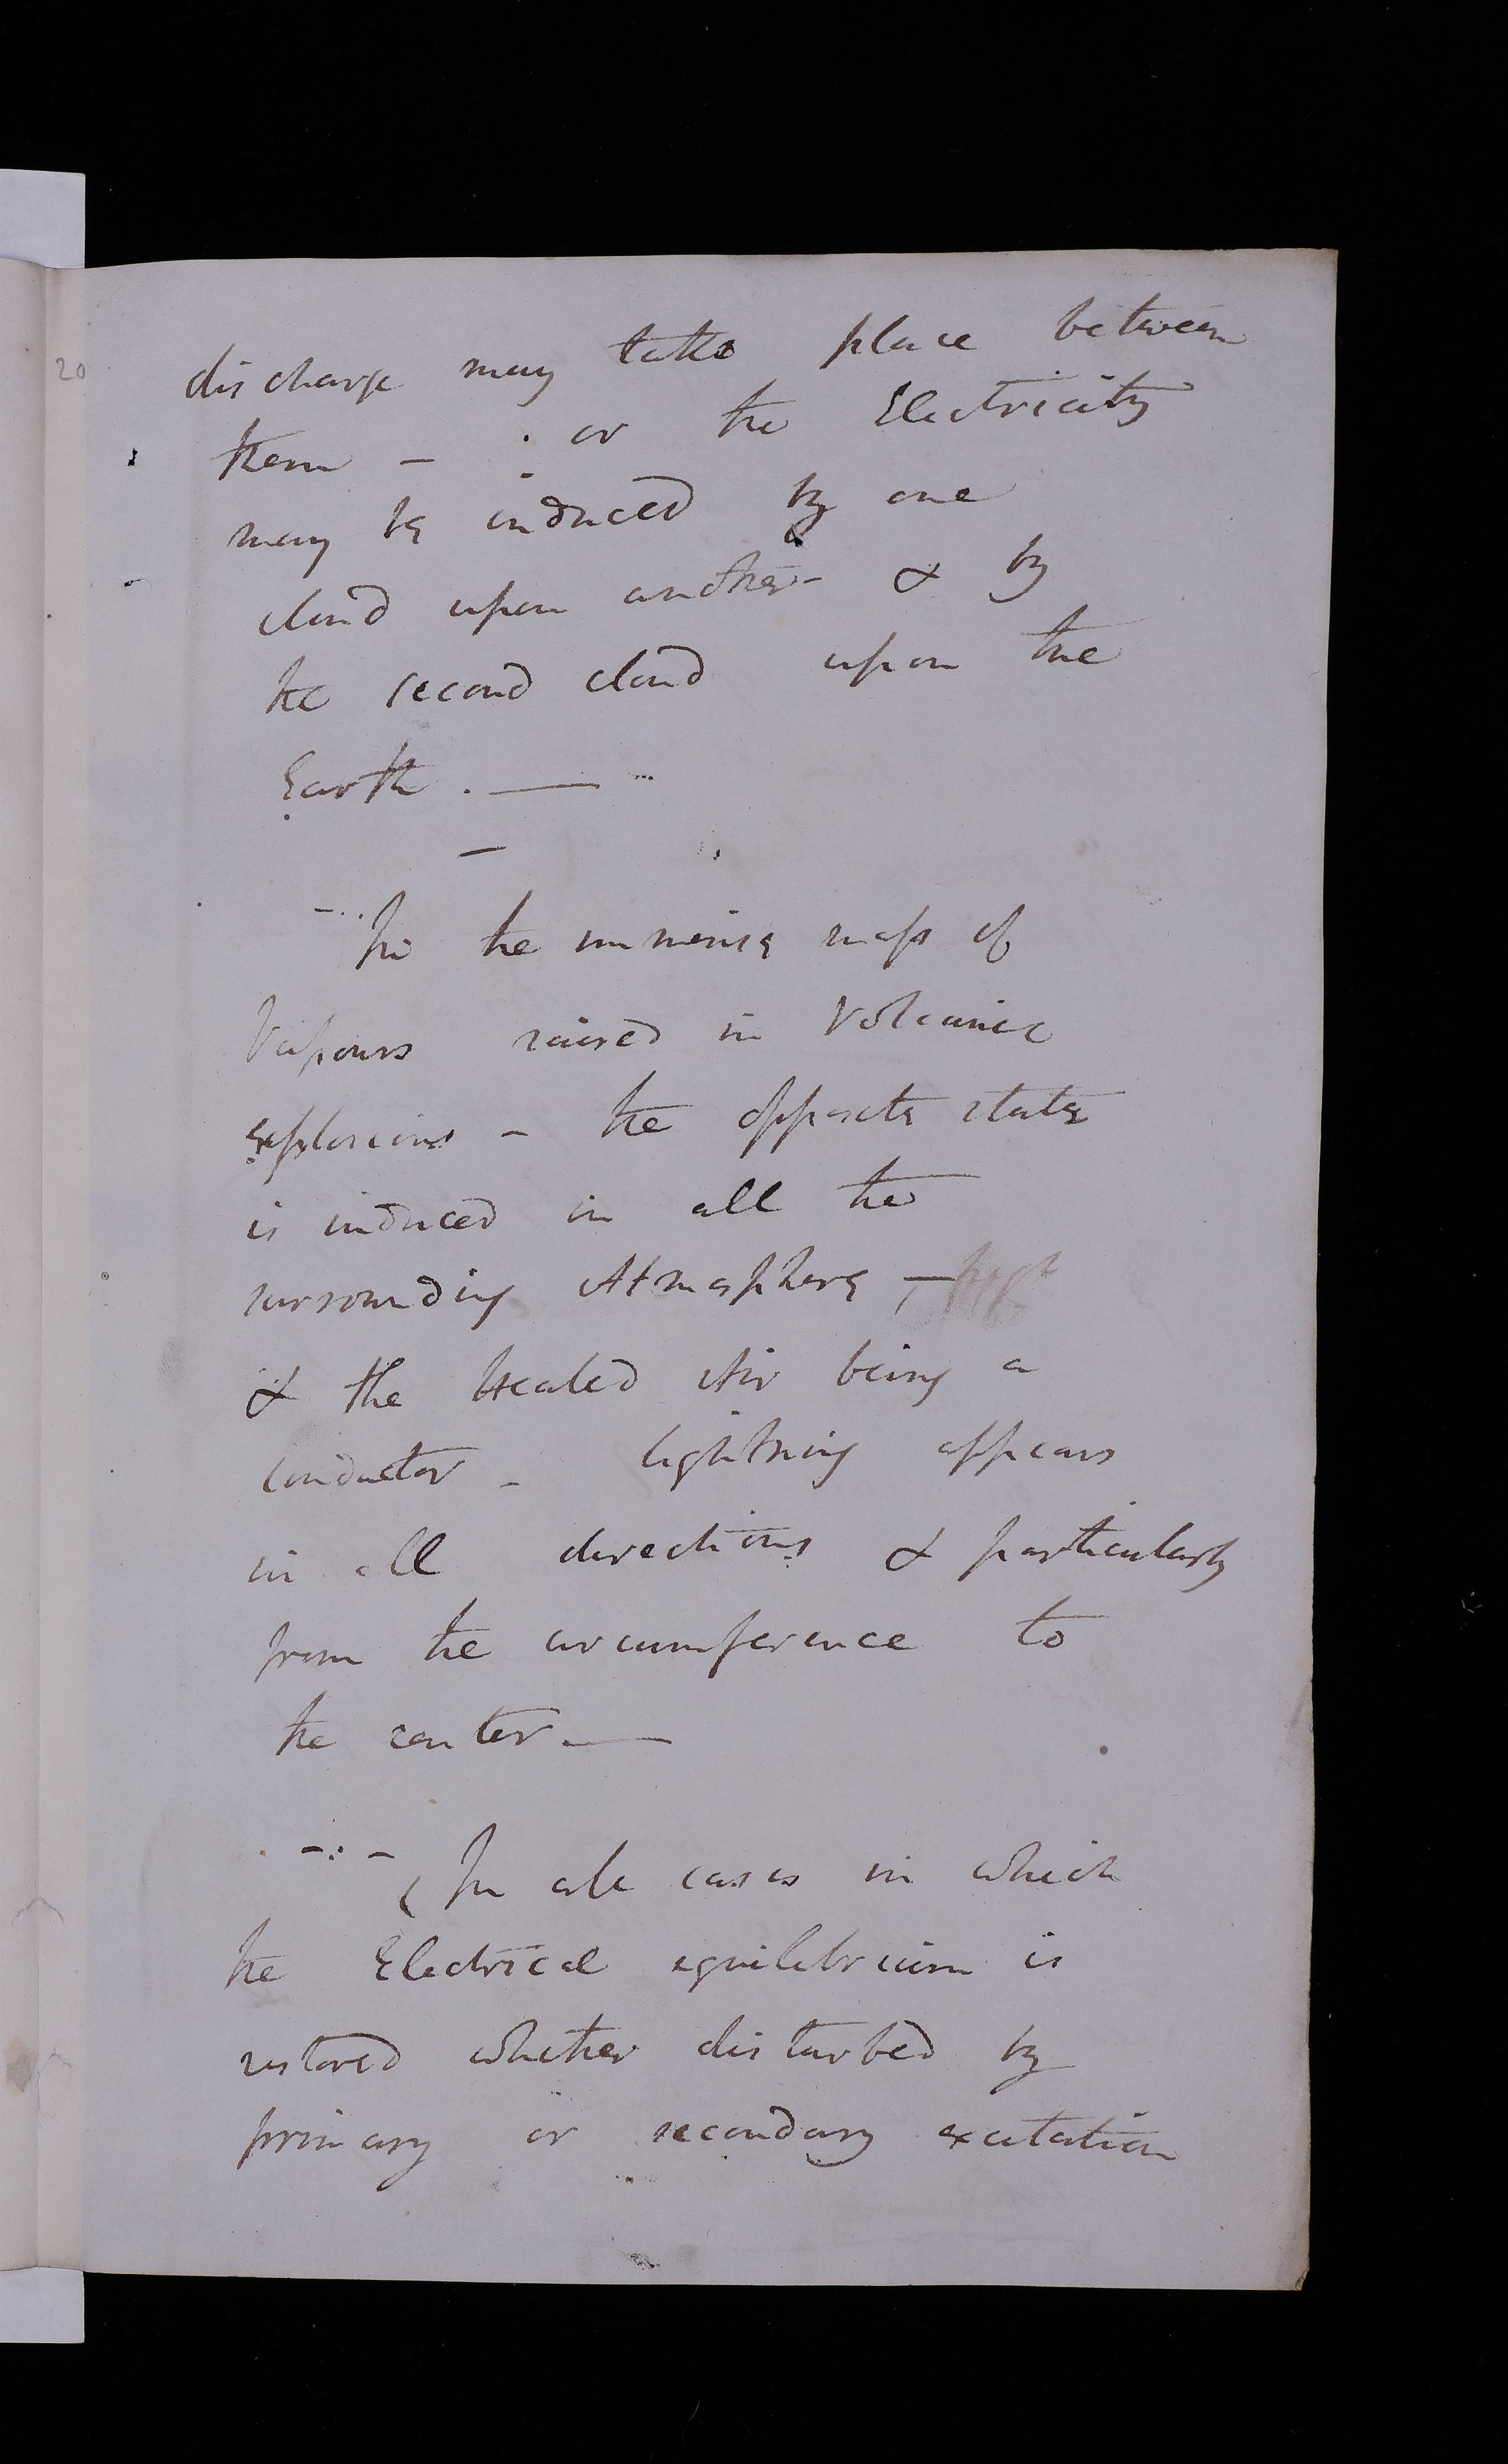 20
discharge may take place between
them — . or the Electricity
may be induced by one
cloud upon another - & by
the second cloud upon the
Earth. —
—
In the immense mass of
Vapours raised in Volcanic
explosions - the opposite state
is induced in all the
surrounding Atmosphere, —
& the Heated Air being a
conductor - lightning appears
in all directions & particularly
from the circumference to
the center —
(In all cases in which
the Electrical equilibrium is
restored whether disturbed by
primary or secondary excitation